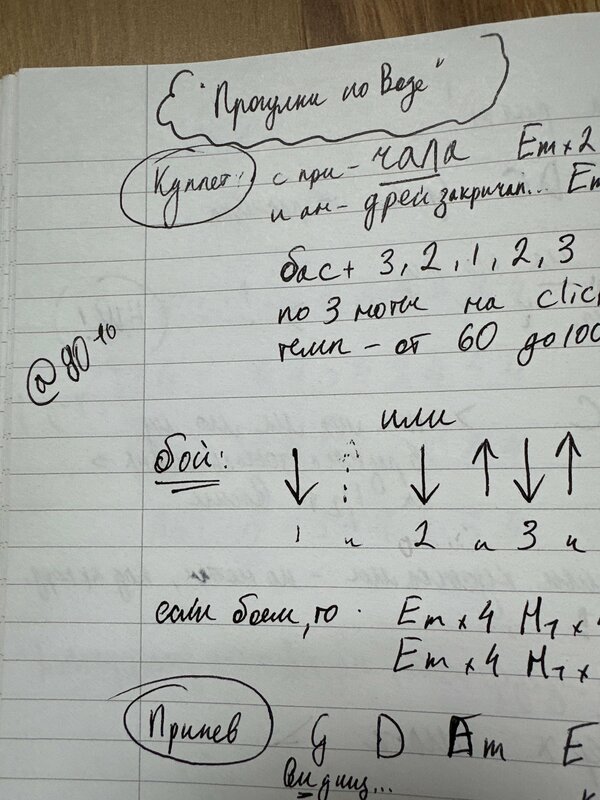 "Прогулки по Воде"
Куплет: с при-чала Em x 2
и ан-дрей закричал... Em
бас + 3, 2, 1, 2, 3
по 3 ноты на clic
темп - от 60 до 100
@ 80
или
бой: ↓ ↑ ↓ ↑ ↓ ↑
1 и 2 и 3 и
если боем, то. Em x 4 H7 x 4
Em x 4 H7 x
Припев G D Am E
видиш...